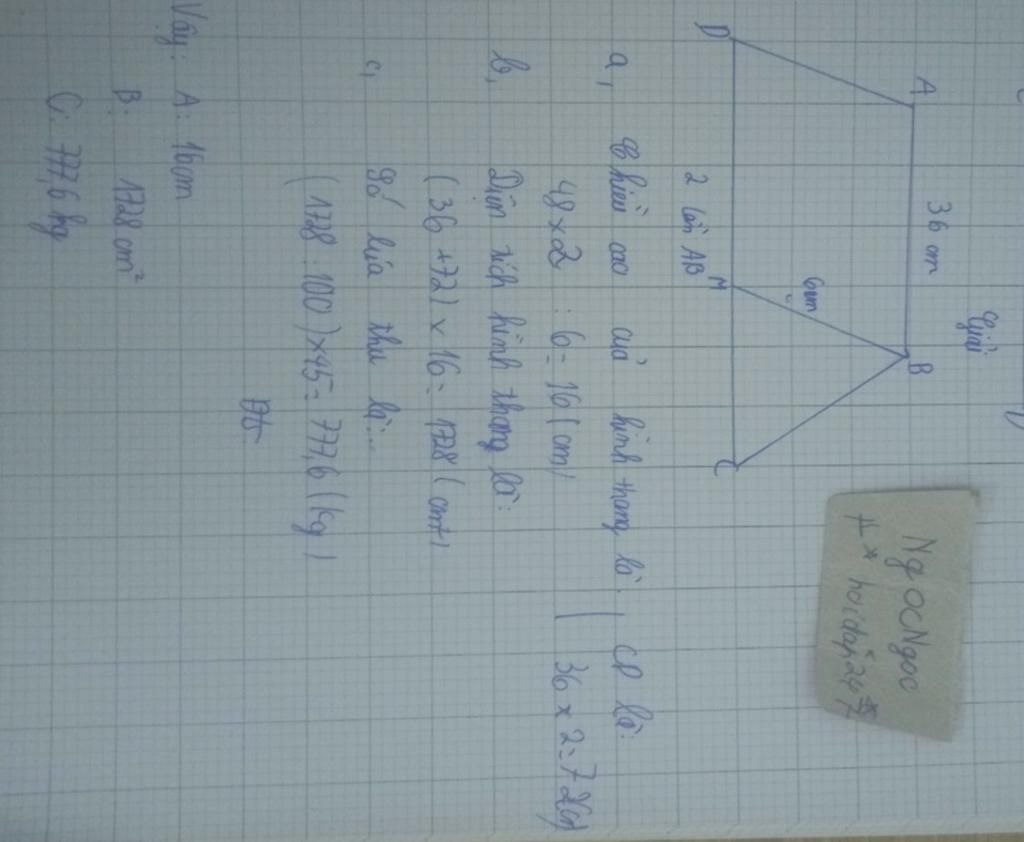 Giải
A 36 cm B
6cm
D M C
2 lần AB
NgOCNgoc
hoidap247
a, Chiều cao của hình thang là.
48 x 2 : 6 = 16 (cm)
CD là:
36 x 2 = 72(
b, Diện tích hình thang là:
(36 + 72) x 16 = 1728 (
c, Số lúa thu là:...
(1728 : 100) x 45 = 777,6 (kg)
Đs
Vậy: A: 16cm
B: 1728 cm²
C: 777,6 kg